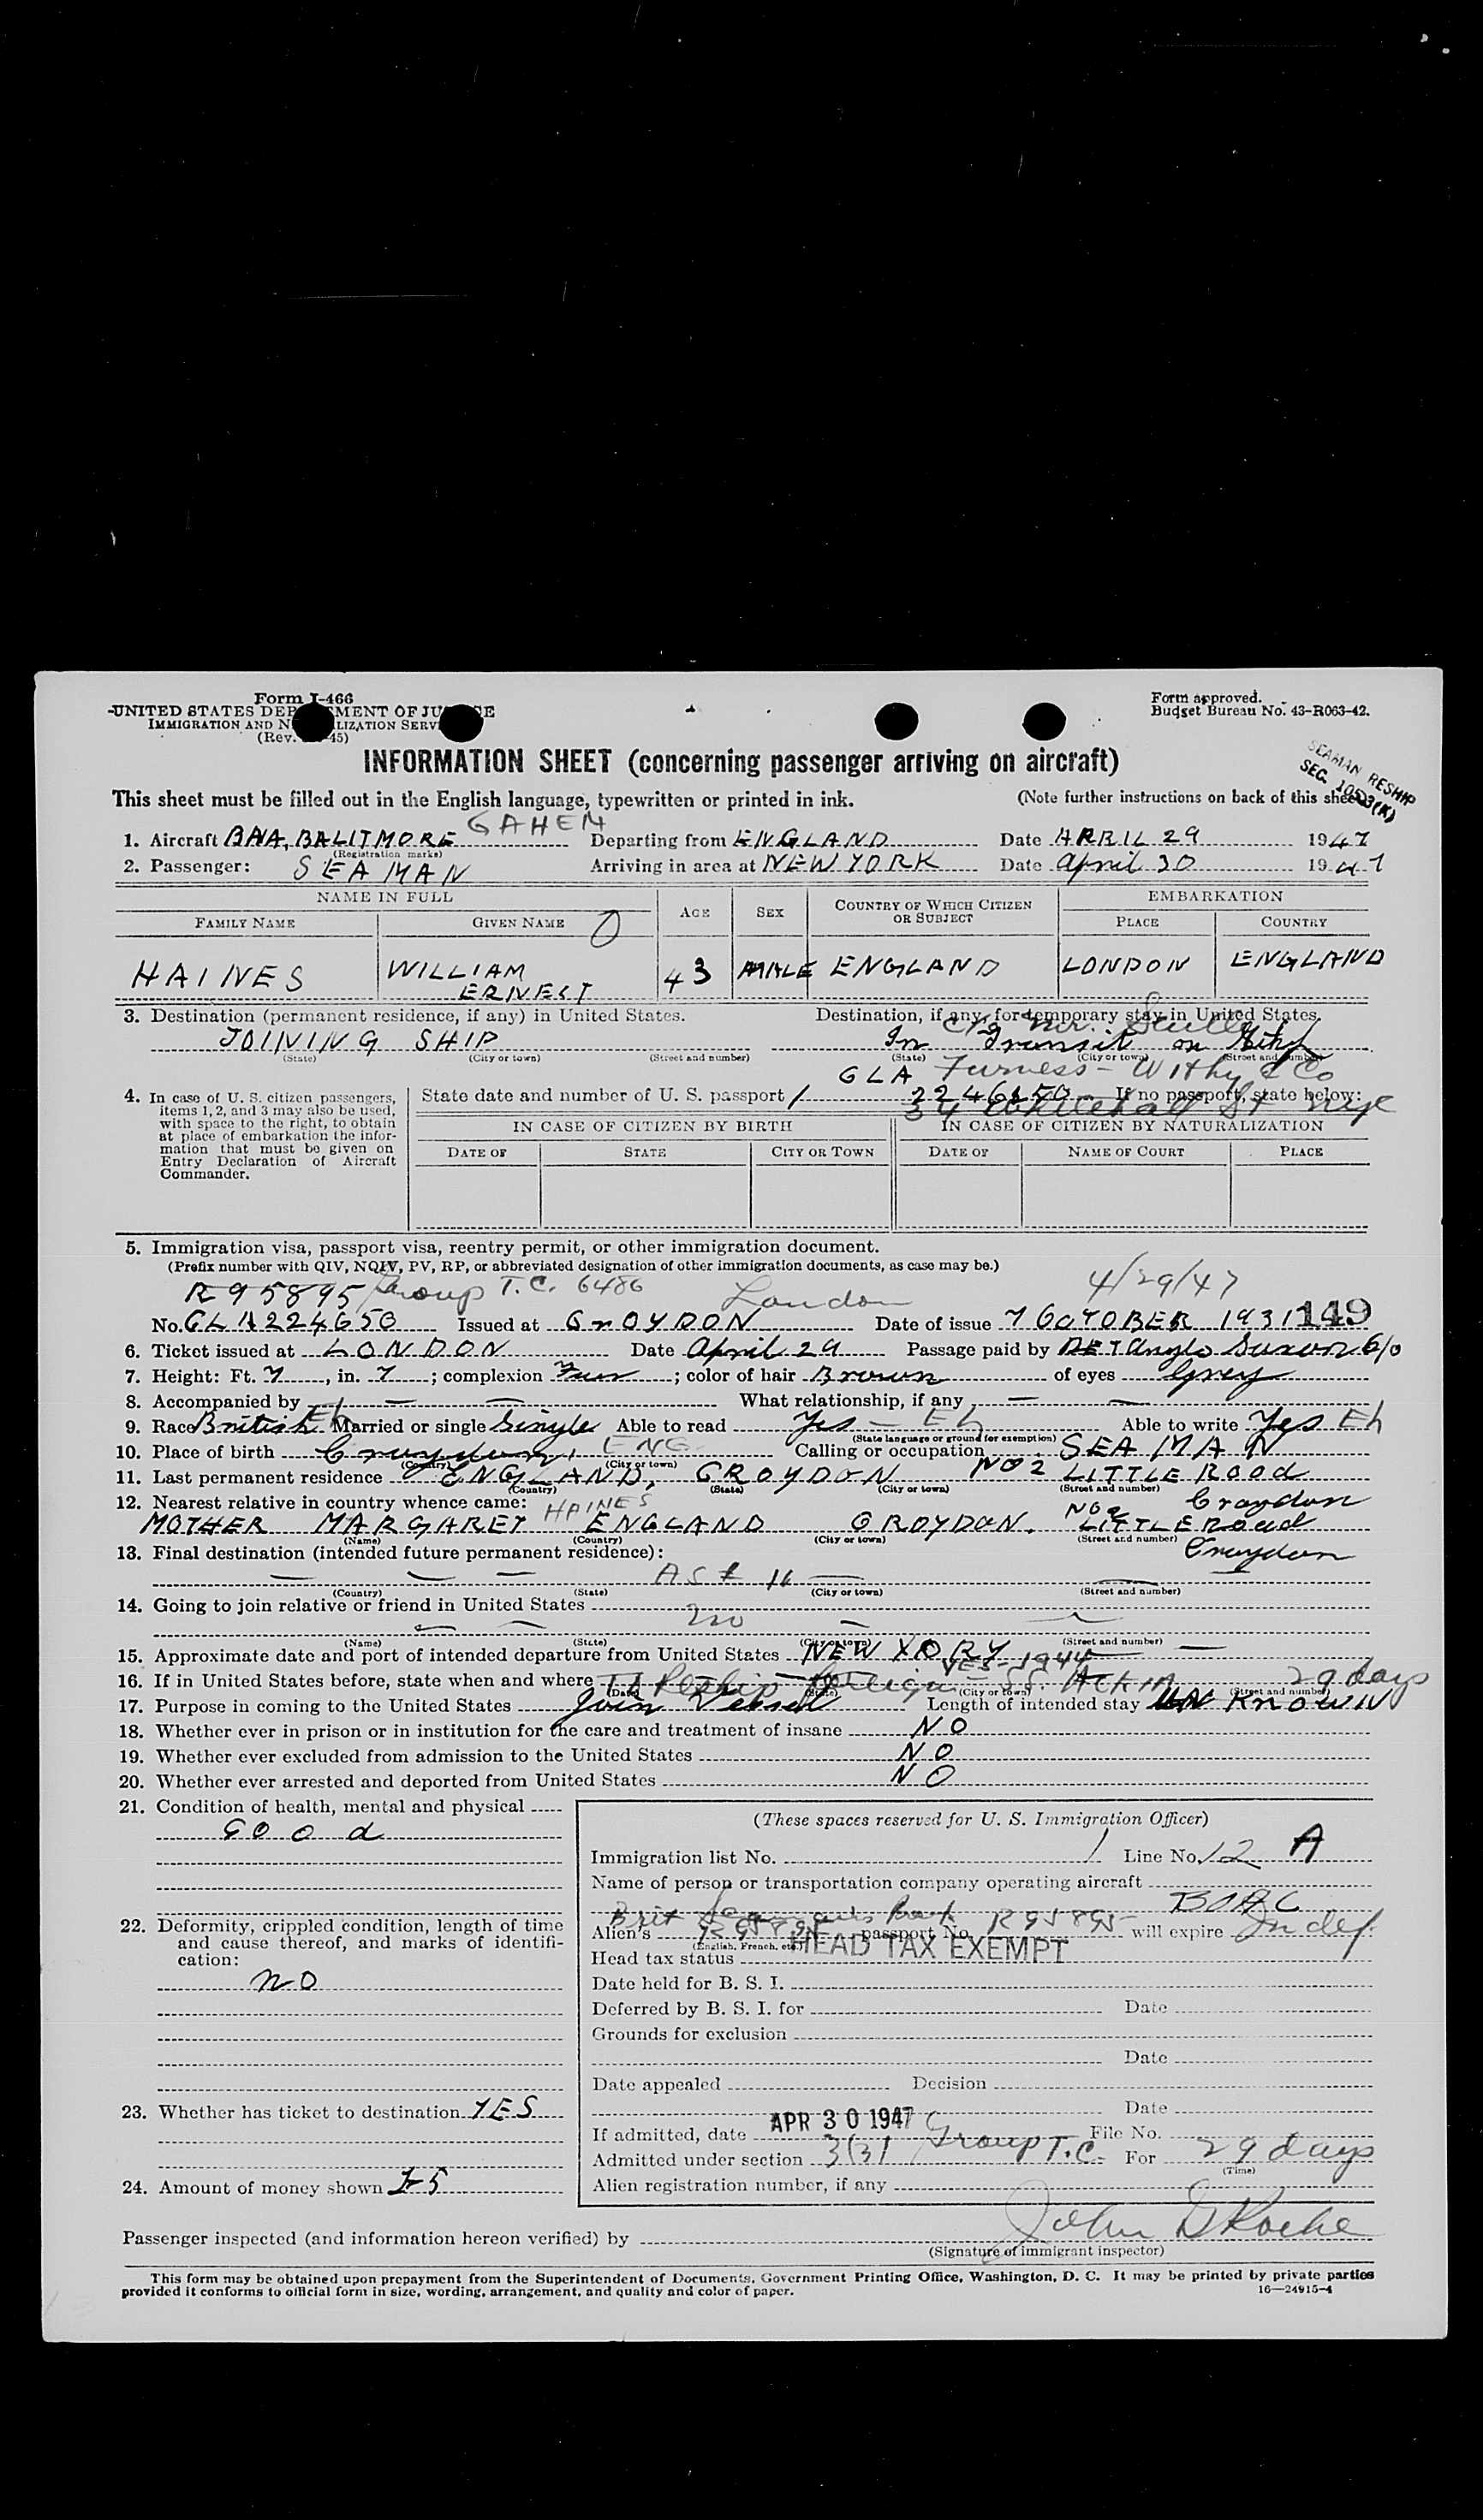 Form I-466
UNITED STATES DEP MENT OF JU CE
IMMIGRATION AND N LIZATION SERV
(Rev. 45)
Form approved.
Budget Bureau No. 43-R063-42.
INFORMATION SHEET (concerning passenger arriving on aircraft)
SEAMAN RESHIP
SEC. 10503(K)
This sheet must be filled out in the English language, typewritten or printed in ink. (Note further instructions on back of this sheet)
GAHEM
1. Aircraft BAA, BALITMORE Departing from ENGLAND Date APRIL 29 1947
(Registration marks)
2. Passenger: SEAMAN Arriving in area at NEW YORK Date April 30 1947
NAME IN FULL AGE SEX COUNTRY OF WHICH CITIZEN OR SUBJECT EMBARKATION
FAMILY NAME GIVEN NAME PLACE COUNTRY
HAINES WILLIAM ERNEST 43 MALE ENGLAND LONDON ENGLAND
3. Destination (permanent residence, if any) in United States. Destination, if any, for temporary stay in United States.
c/o Mr.
JOINING SHIP In Transit on
(State) (City or town) (Street and number) (State) (City or town) (Street and number)
GLA Furness - Withy & Co
4. In case of U. S. citizen passengers, items 1, 2, and 3 may also be used, with space to the right, to obtain at place of embarkation the information that must be given on Entry Declaration of Aircraft Commander.
State date and number of U. S. passport / 224650 If no passport, state below:
34 Whitehall St nyc
IN CASE OF CITIZEN BY BIRTH IN CASE OF CITIZEN BY NATURALIZATION
DATE OF STATE CITY OR TOWN DATE OF NAME OF COURT PLACE
5. Immigration visa, passport visa, reentry permit, or other immigration document.
(Prefix number with QIV, NQIV, PV, RP, or abbreviated designation of other immigration documents, as case may be.)
R95895 Group T.C. 6486 London 4/29/47
No. GLA224650 Issued at CROYDON Date of issue 7 OCTOBER 1931 149
6. Ticket issued at LONDON Date April 29 Passage paid by Anglo Saxon
7. Height: Ft. 7, in. 7; complexion Fair; color of hair Brown of eyes Grey
8. Accompanied by — — What relationship, if any — —
9. Race British Eh Married or single Single Able to read Yes - Eh Able to write Yes Eh
(State language or ground for exemption)
10. Place of birth Croydon, ENG Calling or occupation SEAMAN
(Country) (City or town)
11. Last permanent residence ENGLAND, CROYDON NO 2 LITTLE ROOD
(Country) (State) (City or town) (Street and number)
Croydon
12. Nearest relative in country whence came:
MOTHER MARGARET HAINES ENGLAND CROYDON. NO 2 LITTLE Road
(Name) (Country) (City or town) (Street and number)
Croydon
13. Final destination (intended future permanent residence):
— — — AS # 11 — —
(Country) (State) (City or town) (Street and number)
14. Going to join relative or friend in United States
— — no — —
(Name) (State) (City or town) (Street and number)
15. Approximate date and port of intended departure from United States NEW YORK —
YES - 1944
16. If in United States before, state when and where 29 days
(Date) (State) (City or town) (Street and number)
17. Purpose in coming to the United States Join Vessel Length of intended stay UN KNOWN
18. Whether ever in prison or in institution for the care and treatment of insane NO
19. Whether ever excluded from admission to the United States NO
20. Whether ever arrested and deported from United States NO
21. Condition of health, mental and physical
Good
22. Deformity, crippled condition, length of time and cause thereof, and marks of identification:
NO
23. Whether has ticket to destination YES
24. Amount of money shown £5
(These spaces reserved for U. S. Immigration Officer)
Immigration list No. 1 Line No. 12 A
Name of person or transportation company operating aircraft
BOAC
Brit Seamans Book R95895
Alien's R95895 passport No. will expire Indef.
(English, French, etc.)
Head tax status HEAD TAX EXEMPT
Date held for B. S. I.
Deferred by B. S. I. for Date
Grounds for exclusion
Date
Date appealed Decision
Date
If admitted, date APR 30 1947 File No.
Admitted under section 3(3) Group T.C. For 29 days
(Time)
Alien registration number, if any
Passenger inspected (and information hereon verified) by John D Roche
(Signature of immigrant inspector)
This form may be obtained upon prepayment from the Superintendent of Documents, Government Printing Office, Washington, D. C. It may be printed by private parties
provided it conforms to official form in size, wording, arrangement, and quality and color of paper. 16—24915-4